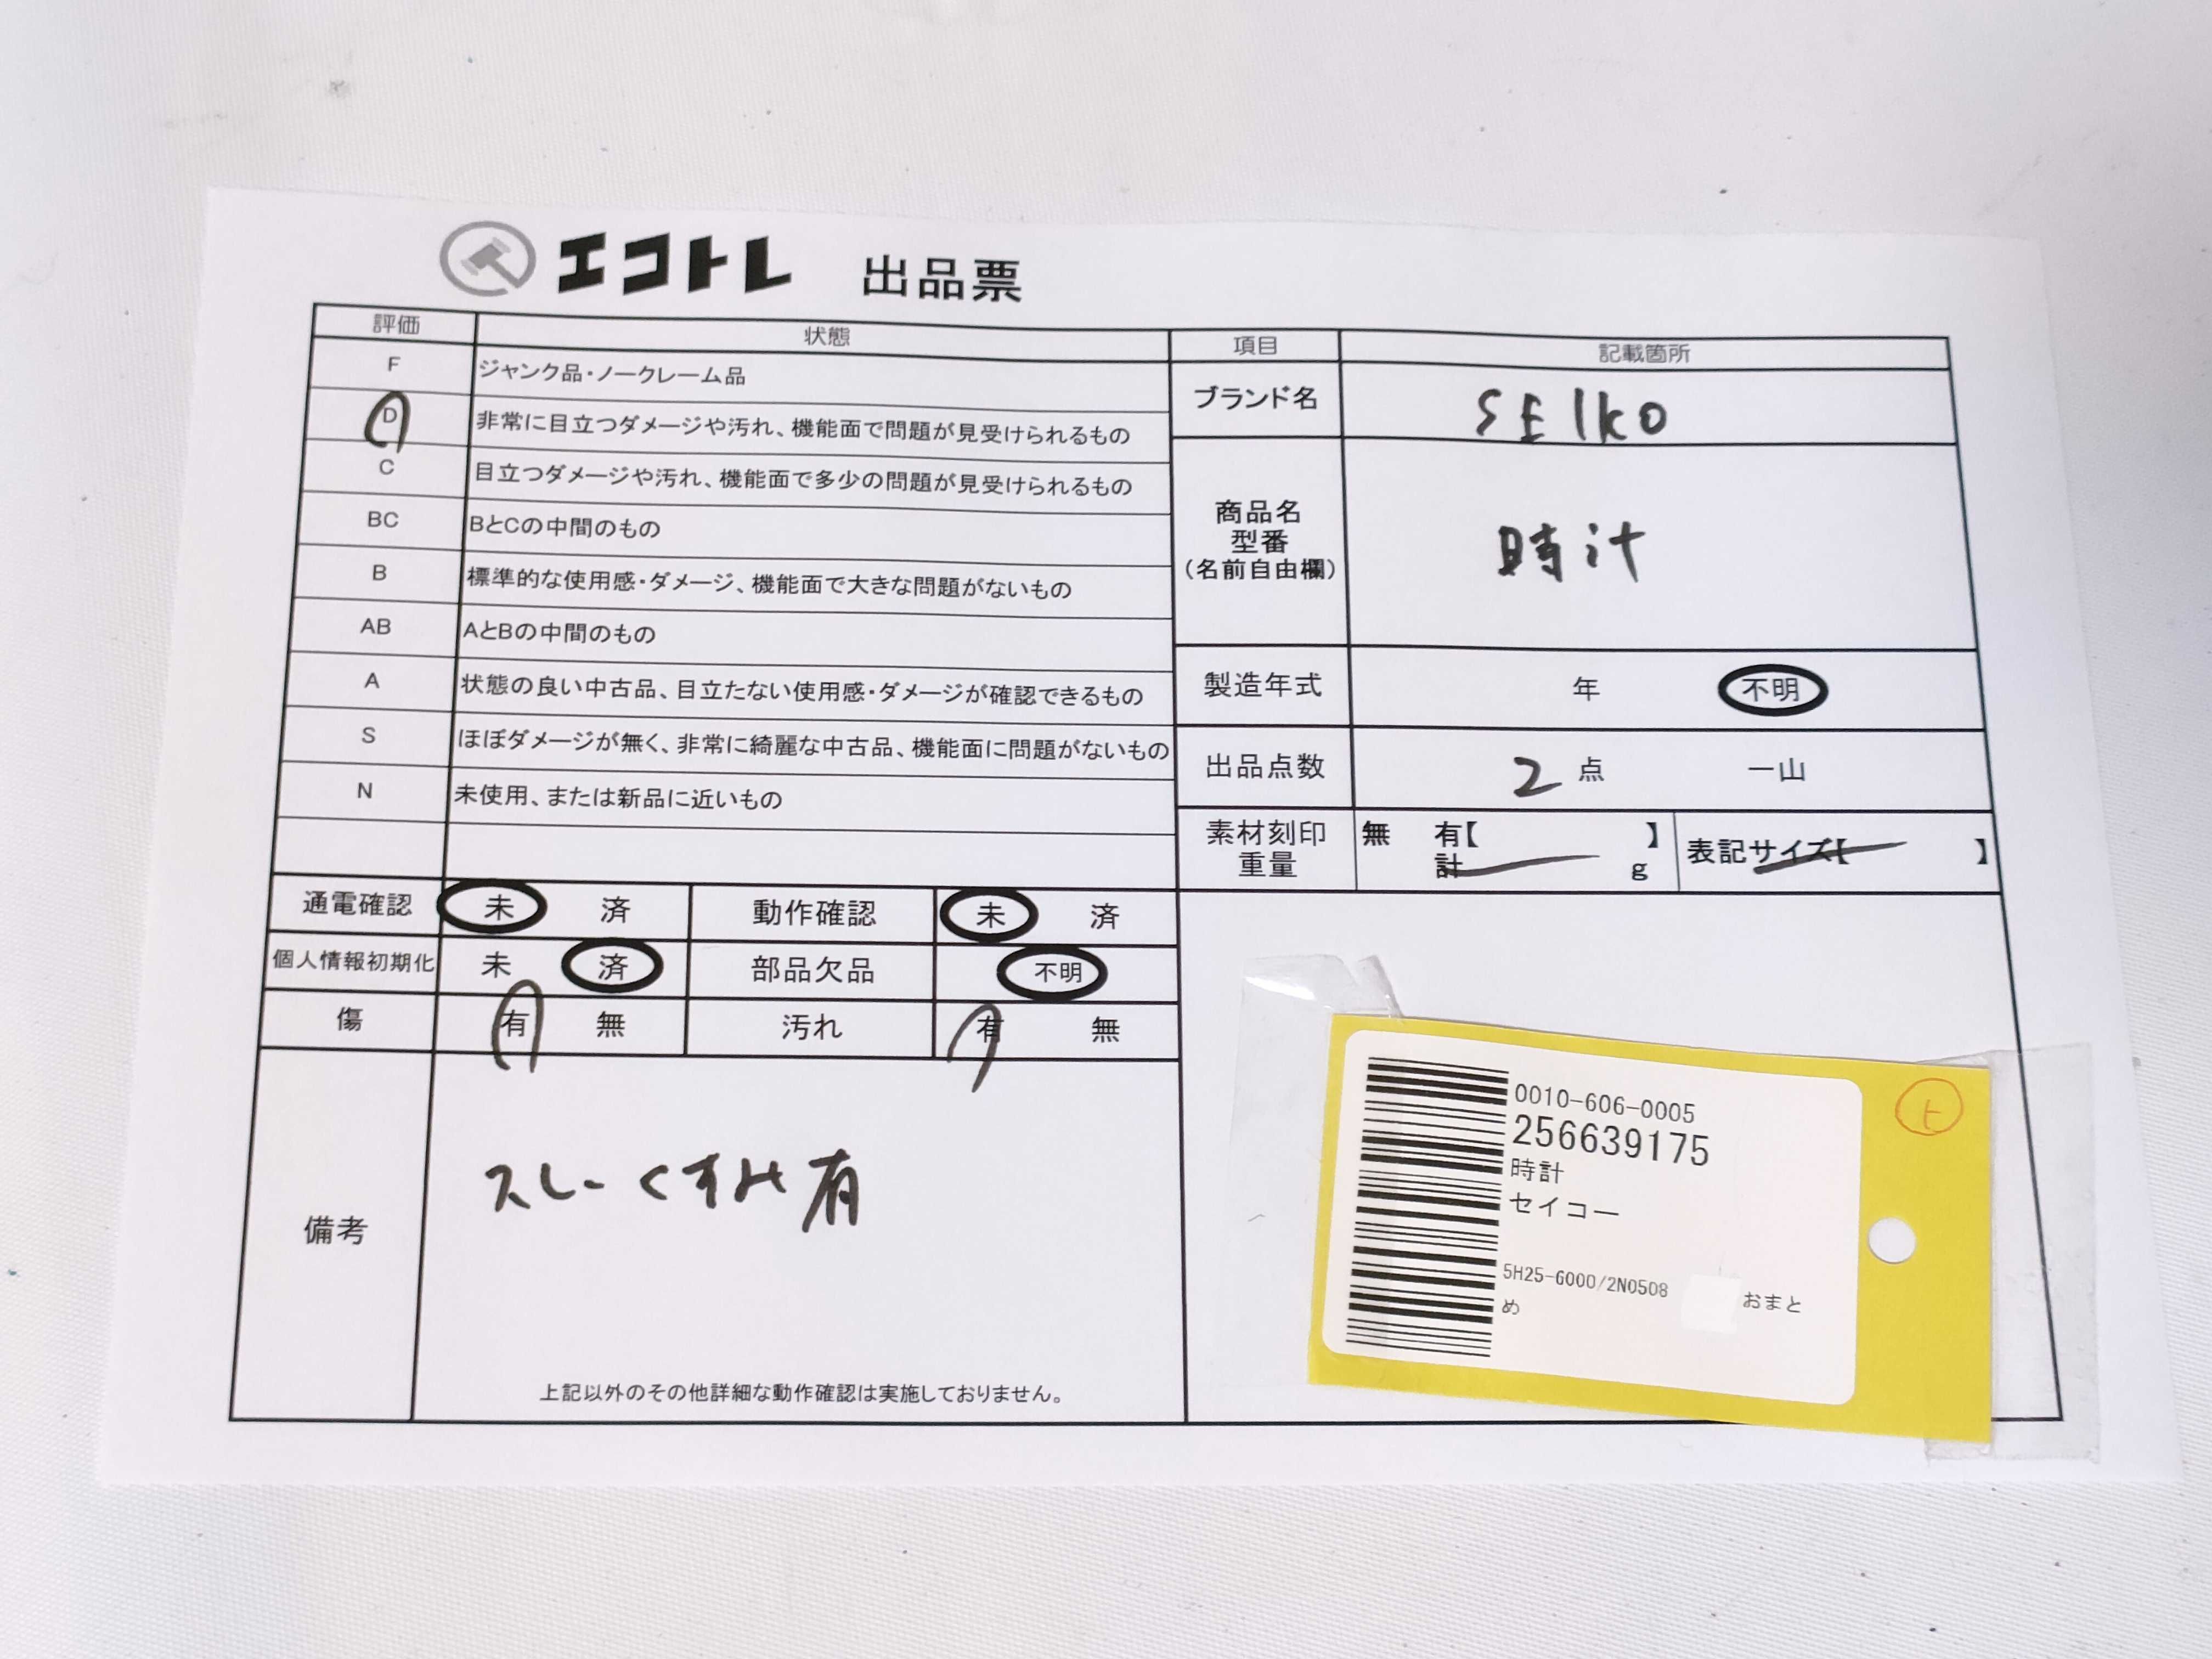 エコトレ 出品票
評価 状態
F ジャンク品・ノークレーム品
D 非常に目立つダメージや汚れ、機能面で問題が見受けられるもの
C 目立つダメージや汚れ、機能面で多少の問題が見受けられるもの
BC BとCの中間のもの
B 標準的な使用感・ダメージ、機能面で大きな問題がないもの
AB AとBの中間のもの
A 状態の良い中古品、目立たない使用感・ダメージが確認できるもの
S ほぼダメージが無く、非常に綺麗な中古品、機能面に問題がないもの
N 未使用、または新品に近いもの
項目 記載箇所
ブランド名 SEIKO
商品名
型番
(名前自由欄)
時計
製造年式 年 不明
出品点数 2 点 一山
素材刻印
重量
無 有【 】
計 g
表記サイズ【 】
通電確認 未 済 動作確認 未 済
個人情報初期化 未 済 部品欠品 不明
傷 有 無 汚れ 有 無
備考
スレーくすみ有
上記以外のその他詳細な動作確認は実施しておりません。
0010-606-0005
256639175
時計
セイコー
5H25-6000/2N0508 おまと
め